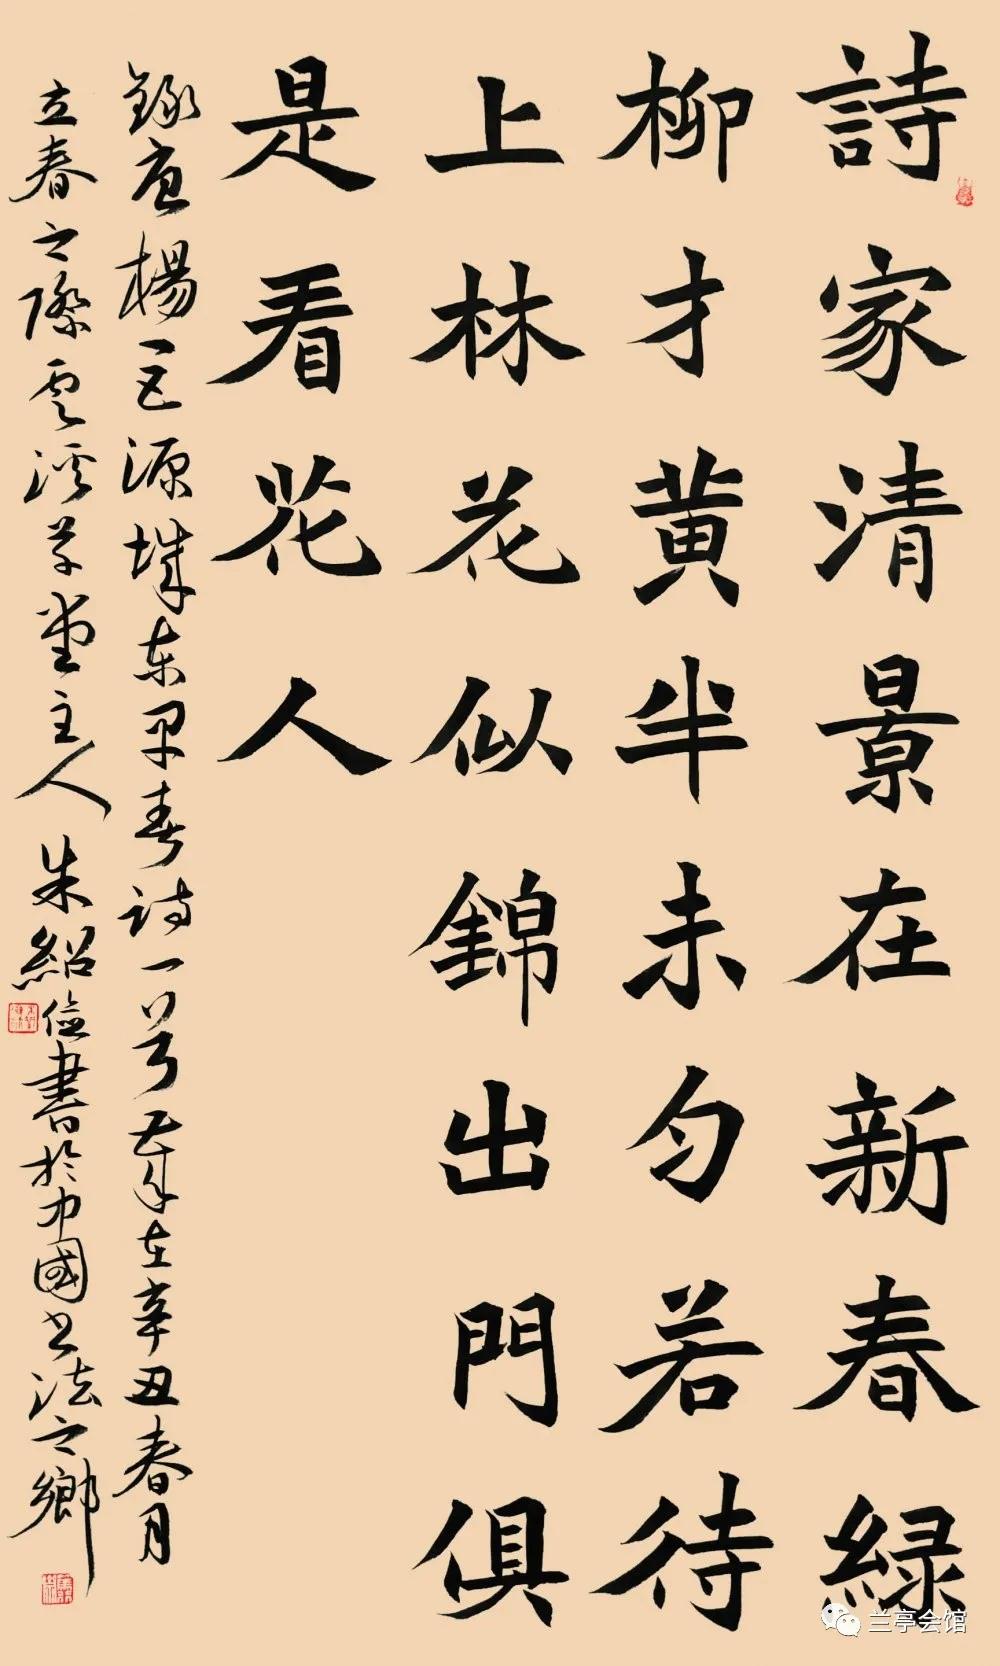 詩家清景在新春緑
柳才黄半未匀若待
上林花似錦出門俱
是看花人
録唐楊巨源城東早春詩一首歲在辛丑春月
立春之際雲溪草堂主人朱紹儉書於中國書法之鄉
兰亭会馆